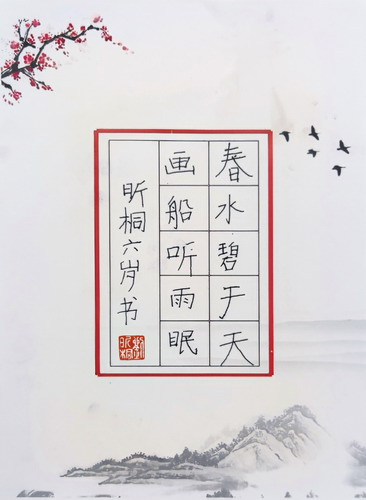 春水碧于天
画船听雨眠
昕桐六岁书